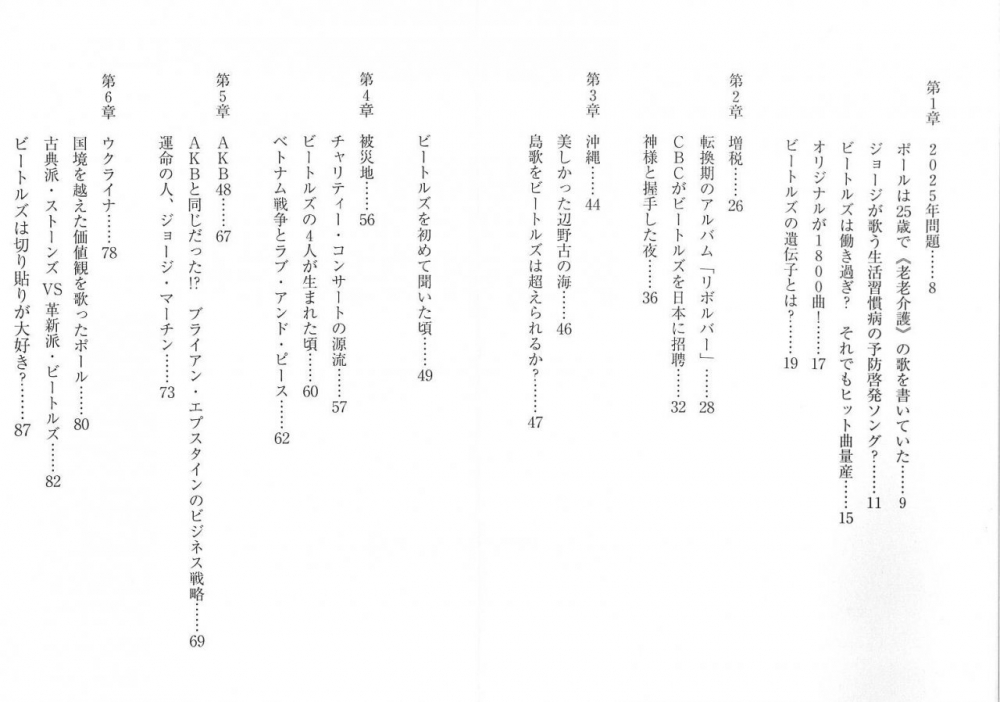 第1章 2025年問題……8
ポールは25歳で《老老介護》の歌を書いていた……9
ジョージが歌う生活習慣病の予防啓発ソング?……11
ビートルズは働き過ぎ? それでもヒット曲量産……15
オリジナルが1800曲!……17
ビートルズの遺伝子とは?……19
第2章 増税……26
転換期のアルバム「リボルバー」……28
CBCがビートルズを日本に招聘……32
神様と握手した夜……36
第3章 沖縄……44
美しかった辺野古の海……46
島歌をビートルズは超えられるか?……47
ビートルズを初めて聞いた頃……49
第4章 被災地……56
チャリティー・コンサートの源流……57
ビートルズの4人が生まれた頃……60
ベトナム戦争とラブ・アンド・ピース……62
第5章 AKB48……67
AKBと同じだった!? ブライアン・エプスタインのビジネス戦略……69
運命の人、ジョージ・マーチン……73
第6章 ウクライナ……78
国境を越えた価値観を歌ったポール……80
古典派・ストーンズ VS 革新派・ビートルズ……82
ビートルズは切り貼りが大好き?……87